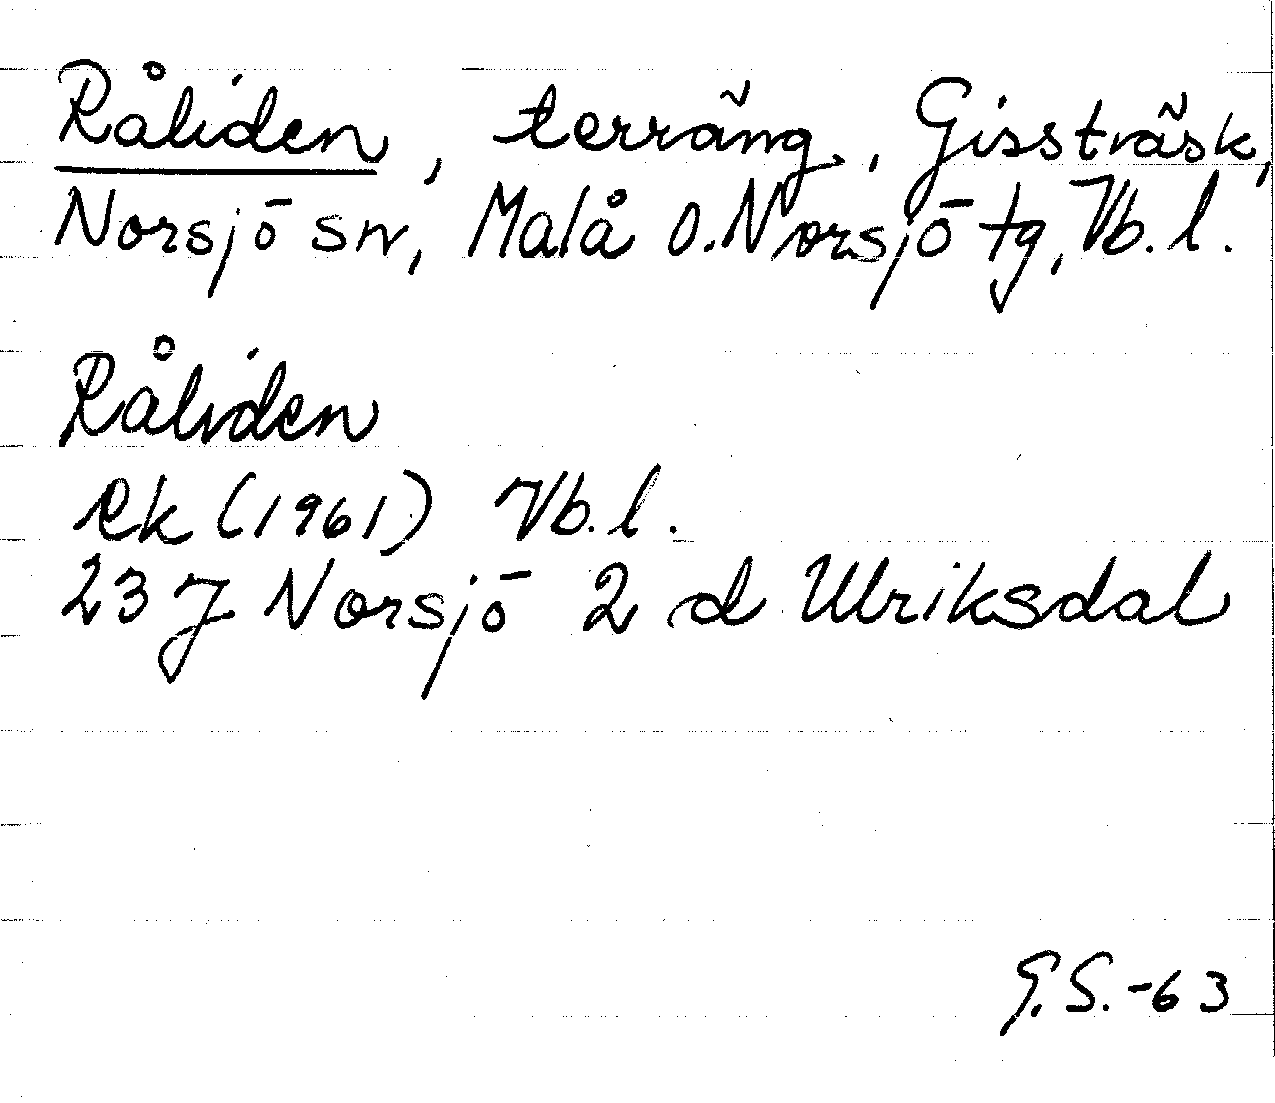 Råliden, terräng, Gissträsk,
Norsjö sn, Malå o. Norsjö tg, Vb. l.
Råliden
ek (1961) Vb. l.
23 J Norsjö 2 d Ulriksdal
G.S.-63